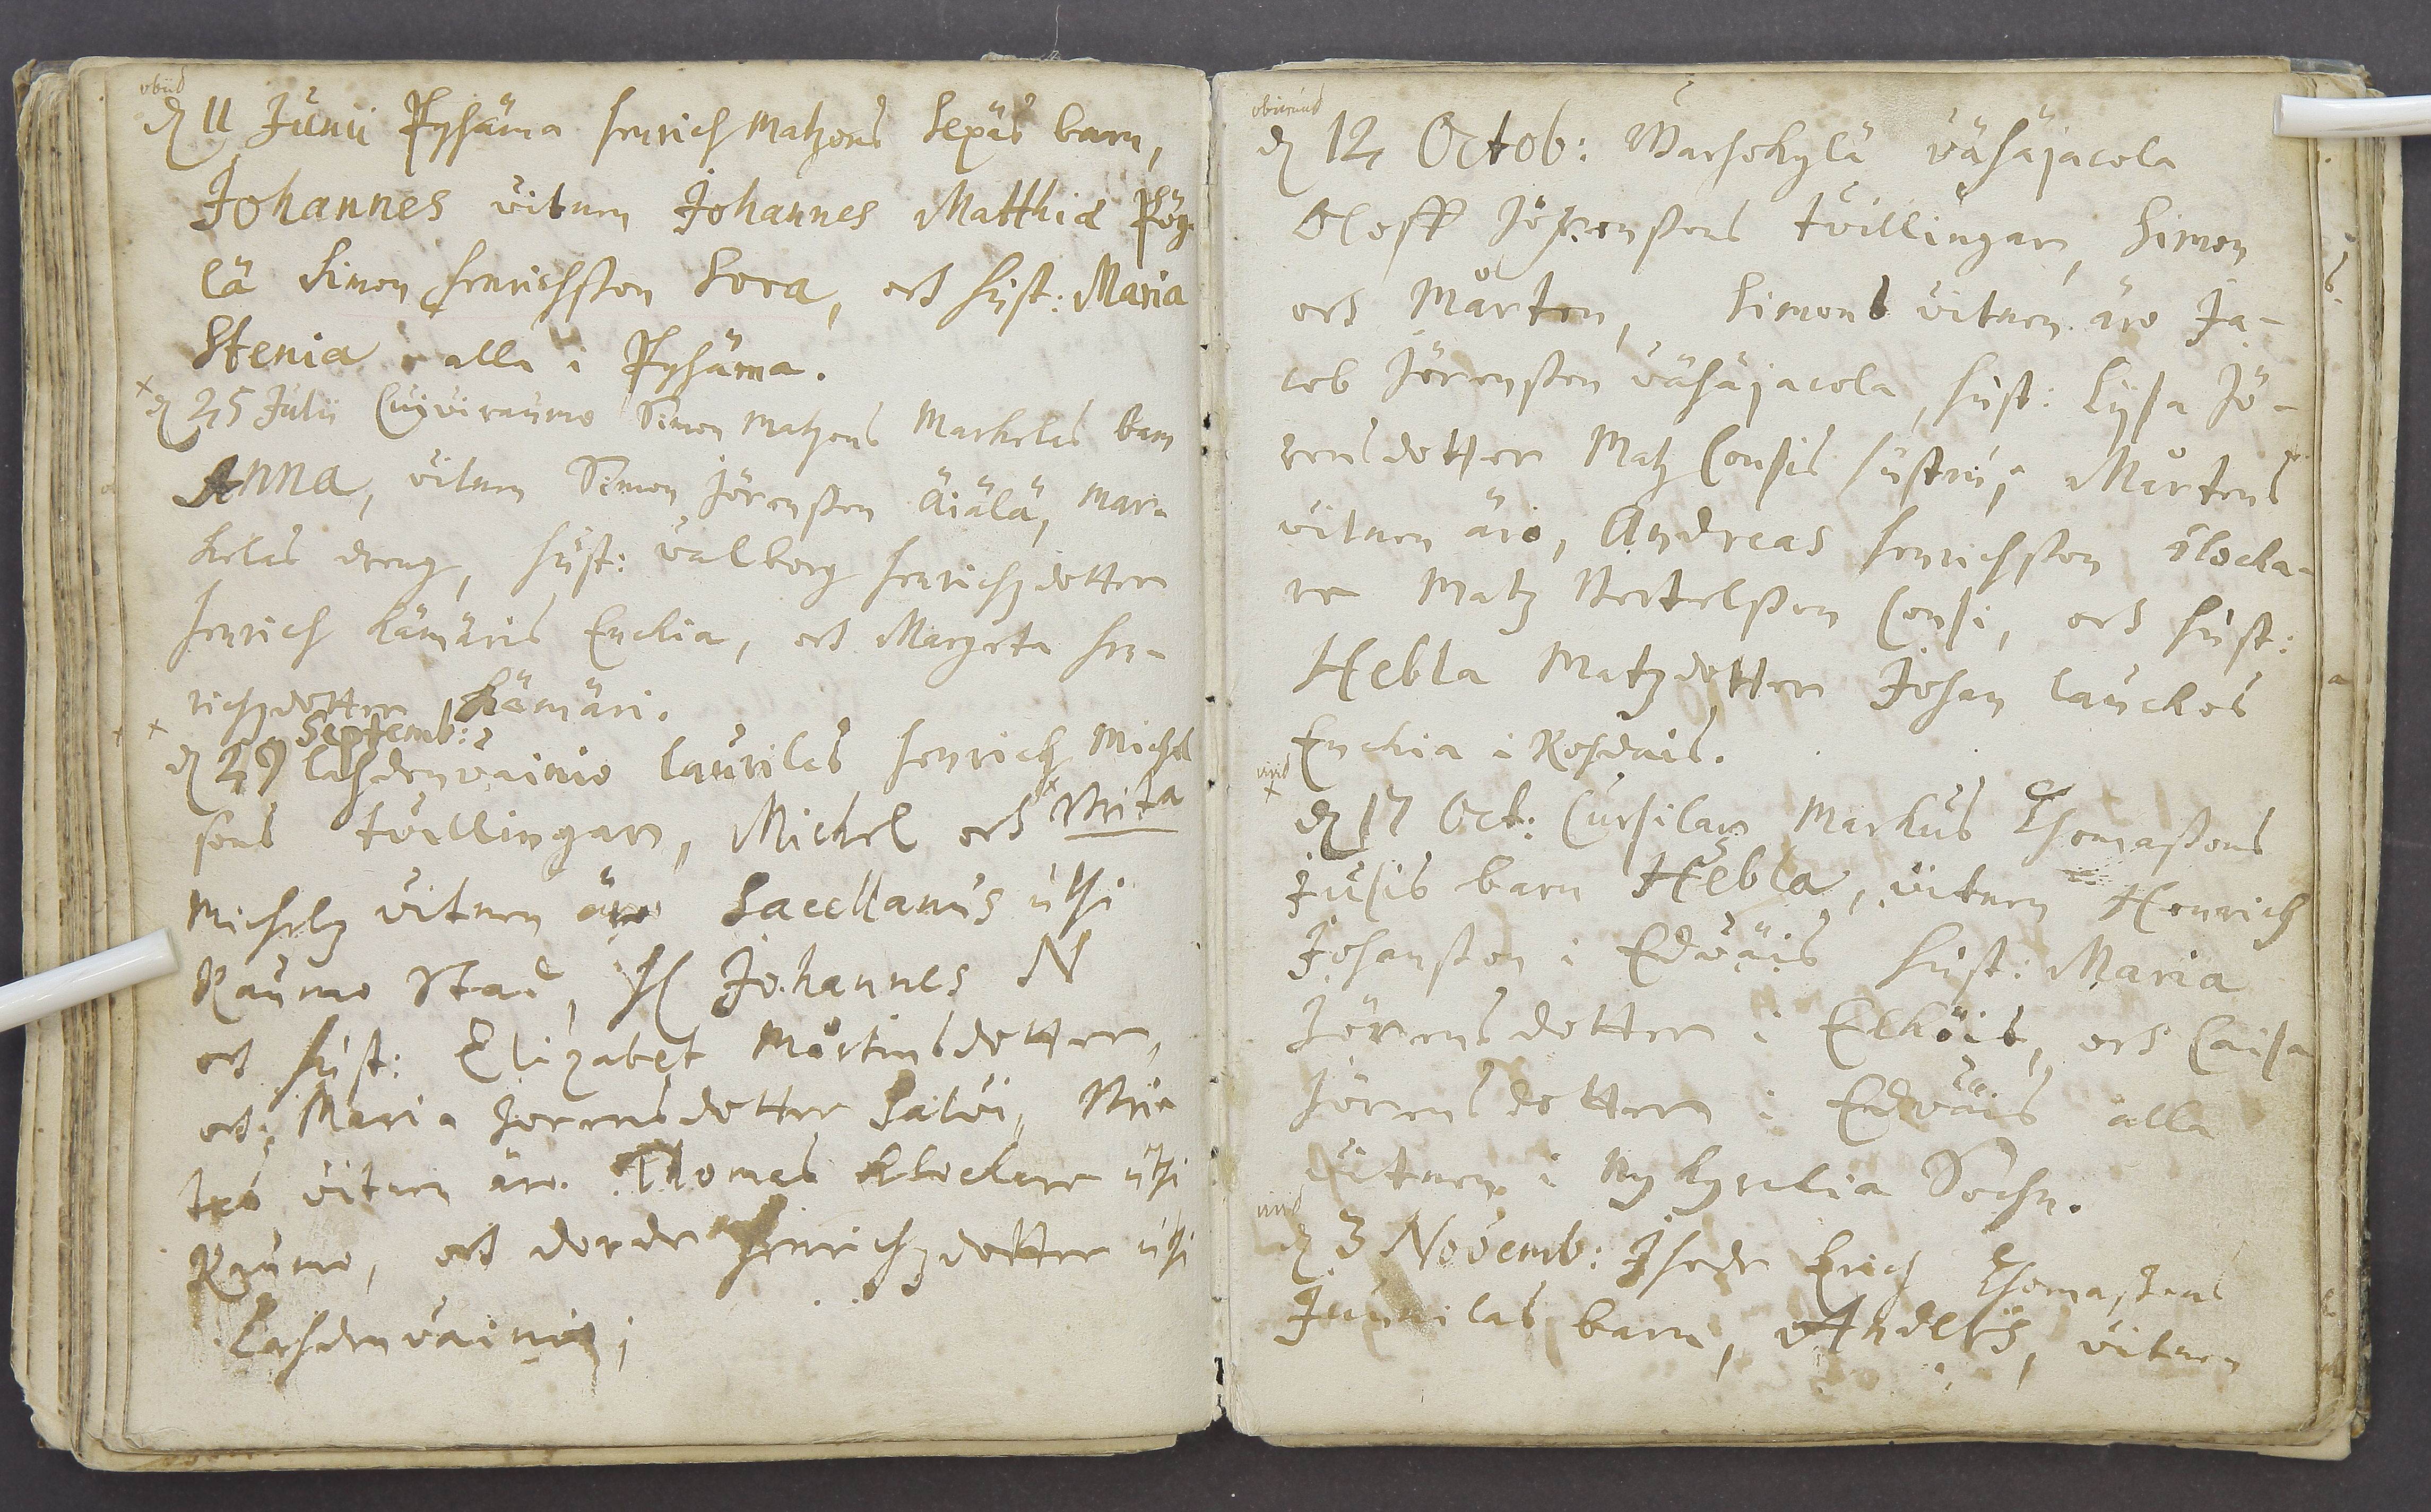 obiit
d 11 Junii Pyhäma Henrich Matzons Sepäs barn,
Johannes vitnen Johannes Matthiæ Pöy-
lä Simon Henrichsson Sora, och hust: Maria
Stenia alla i Pyhäma.
+ d 25 Julii Cuiviraumo Simon Matzons Markelas barn
Anna, vitnen Simon Jörensson Äiälä, Mar-
kelas dreng, hust: Valborg Henrichzdotter
Henrich Kämäris Enckia, och Margeta Hen-
richzdotter Kämäri.
+ Septemb:
d 29 Lahdenvainio Laurilas Henrich Michel
sons tvillingar, Michel och Brita
Michelz vitnen äro Sacellanus uthi
Raumo Stad, H Johannes N
och hust: Elizabet Mårtinsdotter,
och Maria Jörensdotter Salvi, Bri-
tas vitnen äro. Thomas Klockare uthi
Raumo, och dorde Henrichzdotter uthi
Lahdenvainio;
obierunt
d 12 Octob: Warhokylä vähäjacola
Oloff Jörensons tvillingar, Simon
och Mårten, Simons vitnen äro Ja-
cob Jörensson vähäjacola, hust: Lysa Jö-
rensdotter Matz Consis hustru; Mårtens
vitnen äro, Andreas Henrichsson Klocka-
re Matz Bertelsson Consi, och hust:
Hebla Matzdotter Johan Lauckos
Enckia i Rohdais.
vivit
+
d 17 Oct: Cursilax Markus Thomassons
Jusis barn Hebla, vitnen Henrich
Johansson i Edväis hust: Maria
Jörensdotter i Elköis, och Caisa
Jörensdotter i Edväis alla
vitnen i Nykyrckia Sochn.
vivit
d 3 Novemb: Ihode Erich Thomassons
Junnilas barn, Anders, vitnen